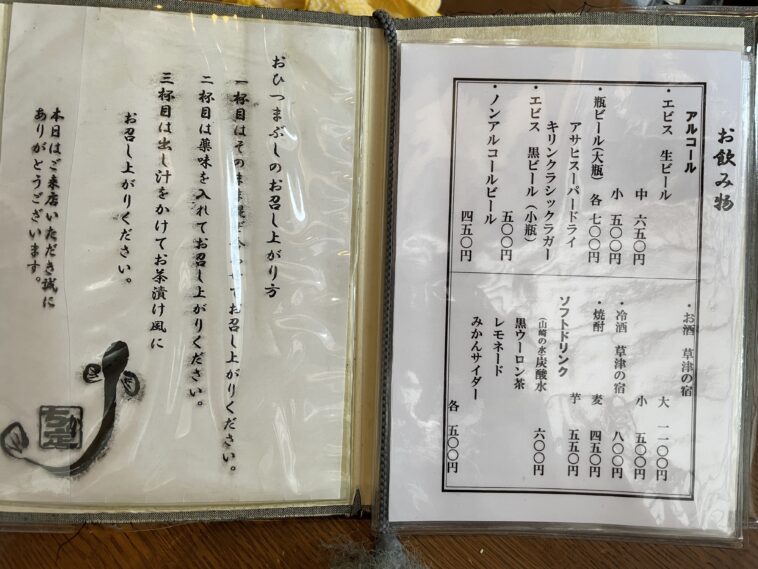 お飲み物
アルコール
・エビス 生ビール
中 六五〇円
小 五〇〇円
・瓶ビール(大瓶) 各 七〇〇円
アサヒスーパードライ
キリンクラシックラガー
・エビス 黒ビール(小瓶)
五〇〇円
・ノンアルコールビール
四五〇円
・お酒 草津の宿
大 一一〇〇円
小 五〇〇円
・冷酒 草津の宿 八〇〇円
・焼酎 麦 四五〇円
芋 五五〇円
ソフトドリンク
(山崎の水)炭酸水 六〇〇円
黒ウーロン茶
レモネード
みかんサイダー
各 五〇〇円
おひつまぶしのお召し上がり方
一杯目はそのまま混ぜ合わせてお召し上がりください。
二杯目は薬味を入れてお召し上がりください。
三杯目は出し汁をかけてお茶漬け風に
お召し上がりください。
本日はご来店いただき誠に
ありがとうございます。